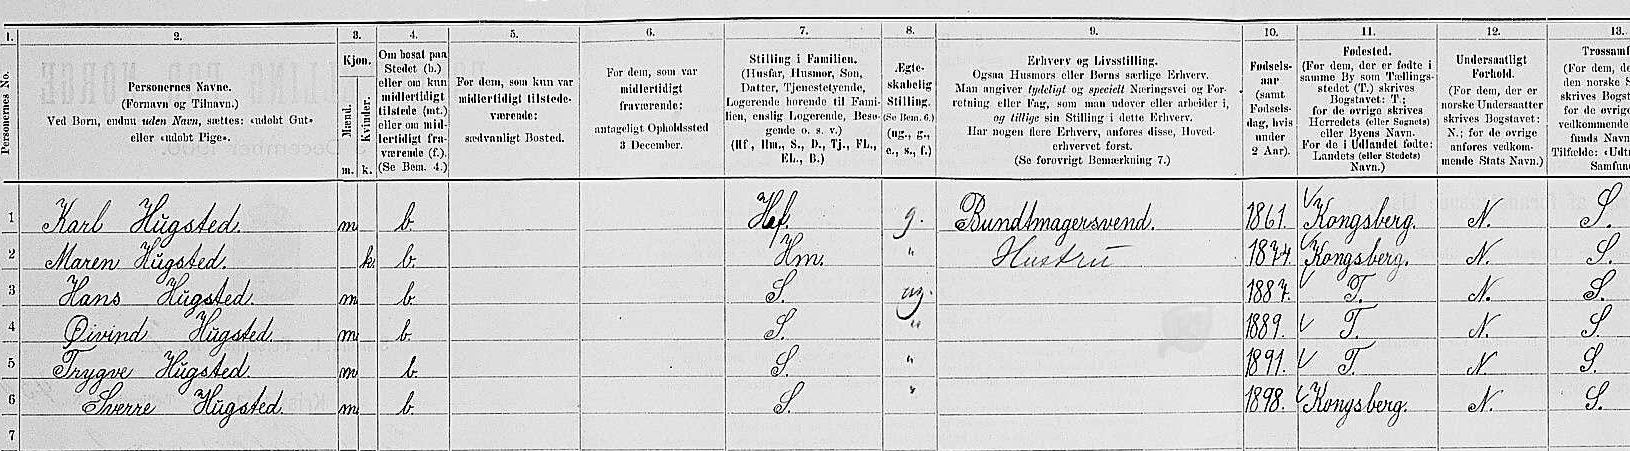 1. 2. 3. 4. 5. 6. 7. 8. 9. 10. 11. 12. 13.
Personernes No.
Personernes Navne.
(Fornavn og Tilnavn.)
Ved Børn, endnu uden Navn, sættes: «udøbt Gut»
eller «udøbt Pige».
Kjøn.
Mænd.
Kvinder.
m. k.
Om bosat paa
Stedet (b.)
eller om kun
midlertidigt
tilstede (mt.)
eller om mid-
lertidigt fra-
værende (f.).
(Se Bem. 4.)
For dem, som kun var
midlertidigt tilstede-
værende:
sædvanligt Bosted.
For dem, som var
midlertidigt
fraværende:
antageligt Opholdssted
3 December.
Stilling i Familien.
(Husfar, Husmor, Søn,
Datter, Tjenestetyende,
Logerende hørende til Fami-
lien, enslig Logerende, Besø-
gende o. s. v.)
(Hf, Hm., S., D., Tj., FL.,
EL., B.)
Ægte-
skabelig
Stilling.
(Se Bem. 6.)
(ug., g.,
e., s., f.)
Erhverv og Livsstilling.
Ogsaa Husmors eller Børns særlige Erhverv.
Man angiver tydeligt og specielt Næringsvei og For-
retning eller Fag, som man udøver eller arbeider i,
og tillige sin Stilling i dette Erhverv.
Har nogen flere Erhverv, anføres disse, Hoved-
erhvervet først.
(Se forøvrigt Bemærkning 7.)
Fødsels-
aar
(samt
Fødsels-
dag, hvis
under
2 Aar).
Fødested.
(For dem, der er fødte i
samme By som Tællings-
stedet (T.) skrives
Bogstavet: T.;
for de øvrige skrives
Herredets (eller Sognets)
eller Byens Navn.
For de i Udlandet fødte:
Landets (eller Stedets)
Navn.)
Undersaatligt
Forhold.
(For dem, der er
norske Undersaatter
skrives Bogstavet:
N.; for de øvrige
anføres vedkom-
mende Stats Navn.)
Trossamf
(For dem, de
den norske S
skrives Bogst
for de øvrige
vedkommende
funds Navn
Tilfælde: «Udt
Samfun
1 Karl Hugsted. m b. Hf. g. Bundtmagersvend. 1861. Kongsberg. N. S.
2 Maren Hugsted. k. b. Hm. " Hustru 1874. Kongsberg. N. S.
3 Hans Hugsted. m b. S. ug. 1887. T. N. S.
4 Øivind Hugsted. m b. S. " 1889. T. N. S.
5 Trygve Hugsted. m b. S. " 1891. T. N. S.
6 Sverre Hugsted. m b. S. " 1898. Kongsberg. N. S.
7